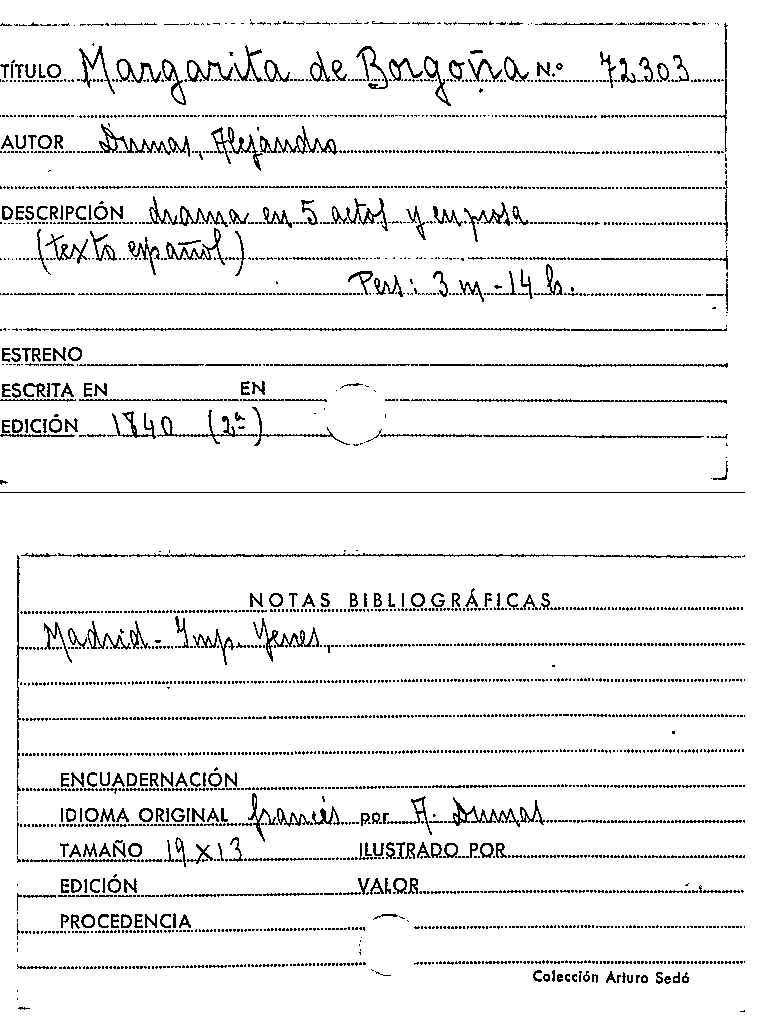 TÍTULO Margarita de Borgoña N.º 72303
AUTOR Dumas, Alejandro
DESCRIPCIÓN drama en 5 actos y en prosa
(texto español)
Pers: 3 m - 14 h.
ESTRENO
ESCRITA EN EN
EDICIÓN 1840 (2ª)
NOTAS BIBLIOGRÁFICAS
Madrid - Imp. Yenes,
ENCUADERNACIÓN
IDIOMA ORIGINAL francés por A. Dumas
TAMAÑO 19 x 13 ILUSTRADO POR
EDICIÓN VALOR
PROCEDENCIA
Colección Arturo Sedó